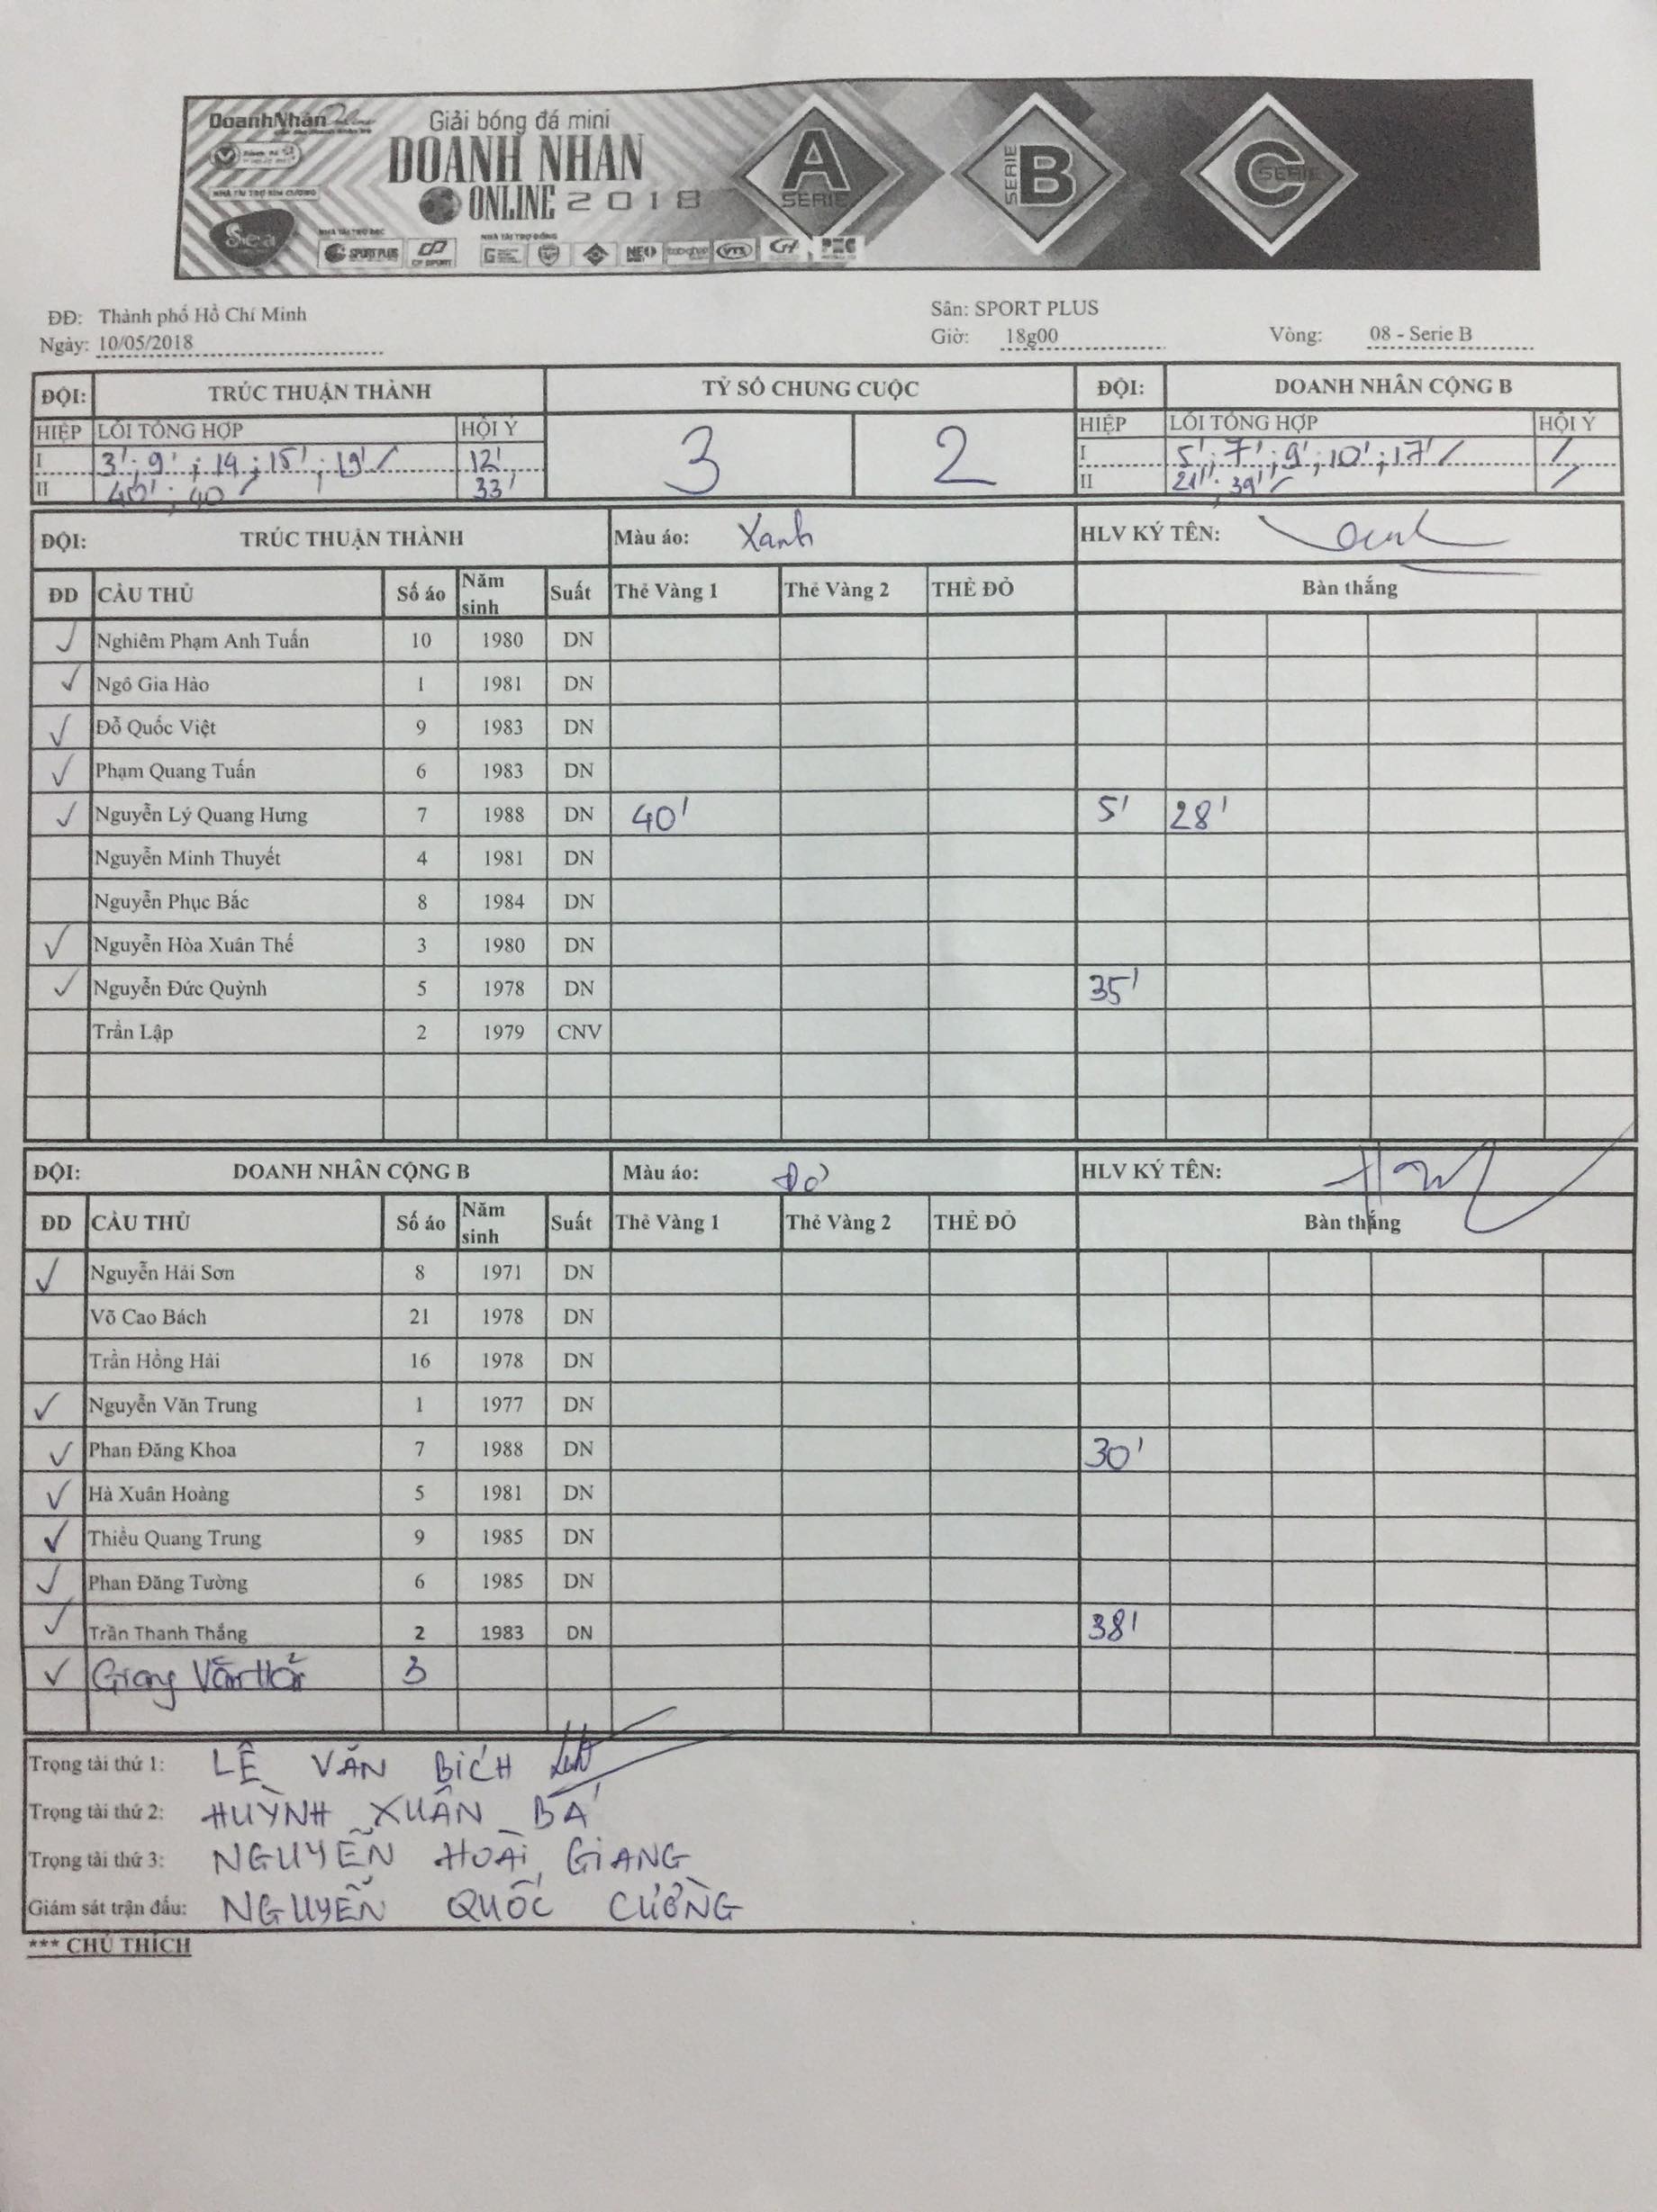 DoanhNhân
Giải bóng đá mini
DOANH NHAN
ONLINE 2018
A
SERIE
SERIE
B
C
SERIE
NHÀ TÀI TRỢ KIM CƯƠNG
Sea
NHÀ TÀI TRỢ BẠC
SPORT PLUS
CP SPORT
NHÀ TÀI TRỢ ĐỒNG
NEO
VTS
ĐĐ: Thành phố Hồ Chí Minh
Sân: SPORT PLUS
Ngày: 10/05/2018
Giờ: 18g00
Vòng: 08 - Serie B
ĐỘI: TRÚC THUẬN THÀNH TỶ SỐ CHUNG CUỘC ĐỘI: DOANH NHÂN CỘNG B
HIỆP LỖI TỔNG HỢP HỘI Ý 3 2 HIỆP LỖI TỔNG HỢP HỘI Ý
I 3'; 9'; 14; 15'; 19' / 12' I 5'; 7'; 9'; 10'; 17' / /
II 40'; 40 / 33' II 21'; 39' / /
ĐỘI: TRÚC THUẬN THÀNH Màu áo: Xanh HLV KÝ TÊN:
ĐD CẦU THỦ Số áo Năm sinh Suất Thẻ Vàng 1 Thẻ Vàng 2 THẺ ĐỎ Bàn thắng
✓ Nghiêm Phạm Anh Tuấn 10 1980 DN
✓ Ngô Gia Hào 1 1981 DN
✓ Đỗ Quốc Việt 9 1983 DN
✓ Phạm Quang Tuấn 6 1983 DN
✓ Nguyễn Lý Quang Hưng 7 1988 DN 40' 5' 28'
Nguyễn Minh Thuyết 4 1981 DN
Nguyễn Phục Bắc 8 1984 DN
✓ Nguyễn Hòa Xuân Thế 3 1980 DN
✓ Nguyễn Đức Quỳnh 5 1978 DN 35'
Trần Lập 2 1979 CNV
ĐỘI: DOANH NHÂN CỘNG B Màu áo: Đỏ HLV KÝ TÊN:
ĐD CẦU THỦ Số áo Năm sinh Suất Thẻ Vàng 1 Thẻ Vàng 2 THẺ ĐỎ Bàn thắng
✓ Nguyễn Hải Sơn 8 1971 DN
Võ Cao Bách 21 1978 DN
Trần Hồng Hải 16 1978 DN
✓ Nguyễn Văn Trung 1 1977 DN
✓ Phan Đăng Khoa 7 1988 DN 30'
✓ Hà Xuân Hoàng 5 1981 DN
✓ Thiều Quang Trung 9 1985 DN
✓ Phan Đăng Tường 6 1985 DN
✓ Trần Thanh Thắng 2 1983 DN 38'
✓ Giang Văn 3
Trọng tài thứ 1: LÊ VĂN BÍCH
Trọng tài thứ 2: HUỲNH XUÂN BÁ
Trọng tài thứ 3: NGUYỄN HOÀI GIANG
Giám sát trận đấu: NGUYỄN QUỐC CƯỜNG
*** CHÚ THÍCH